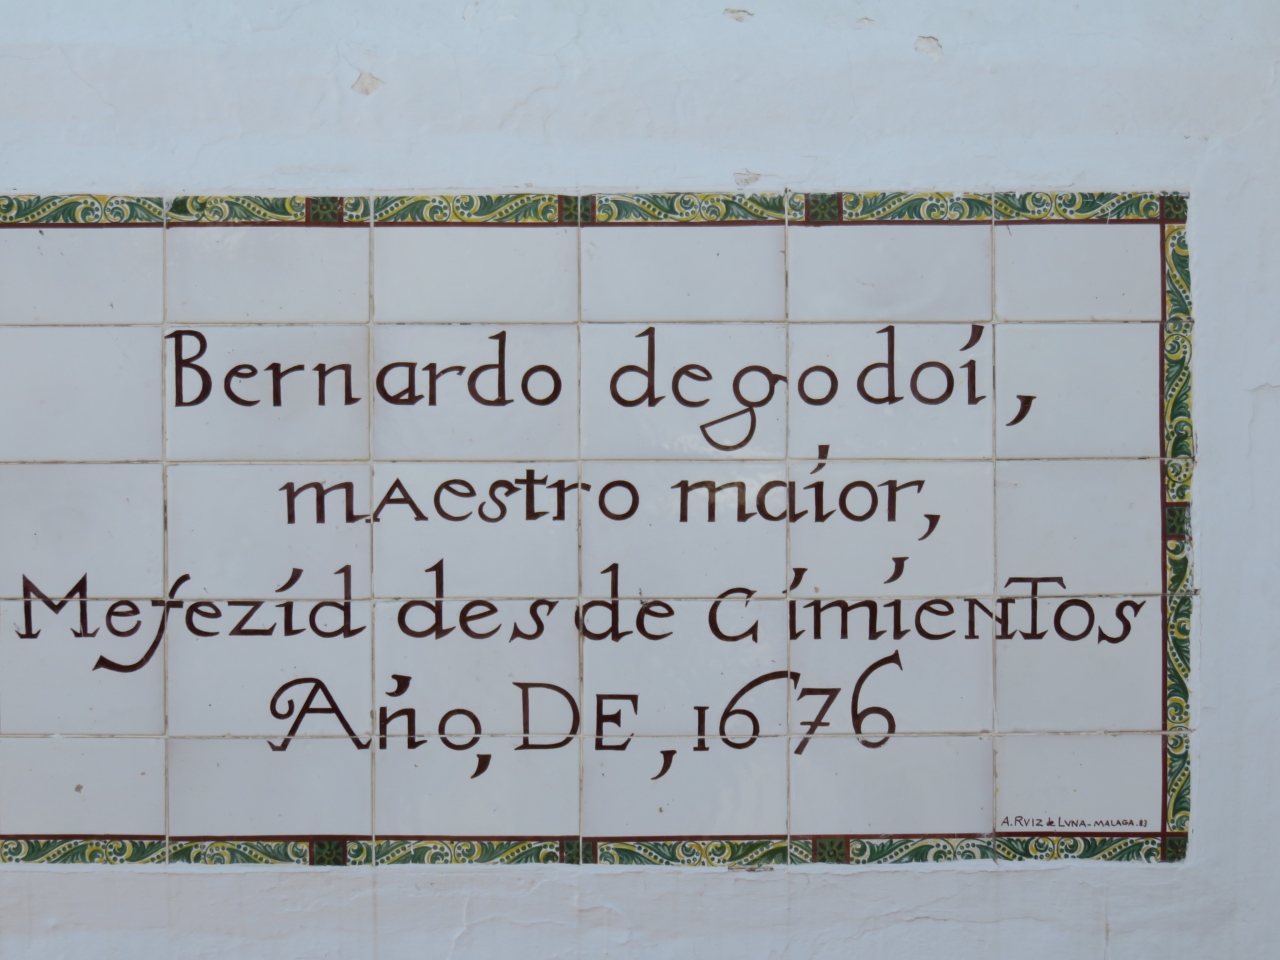 Bernardo degodoí,
mAestro maíor,
Mefezíd desde CímíeNTos
Año, DE, 1676
A. RVIZ de LVNA - MALAGA. 83